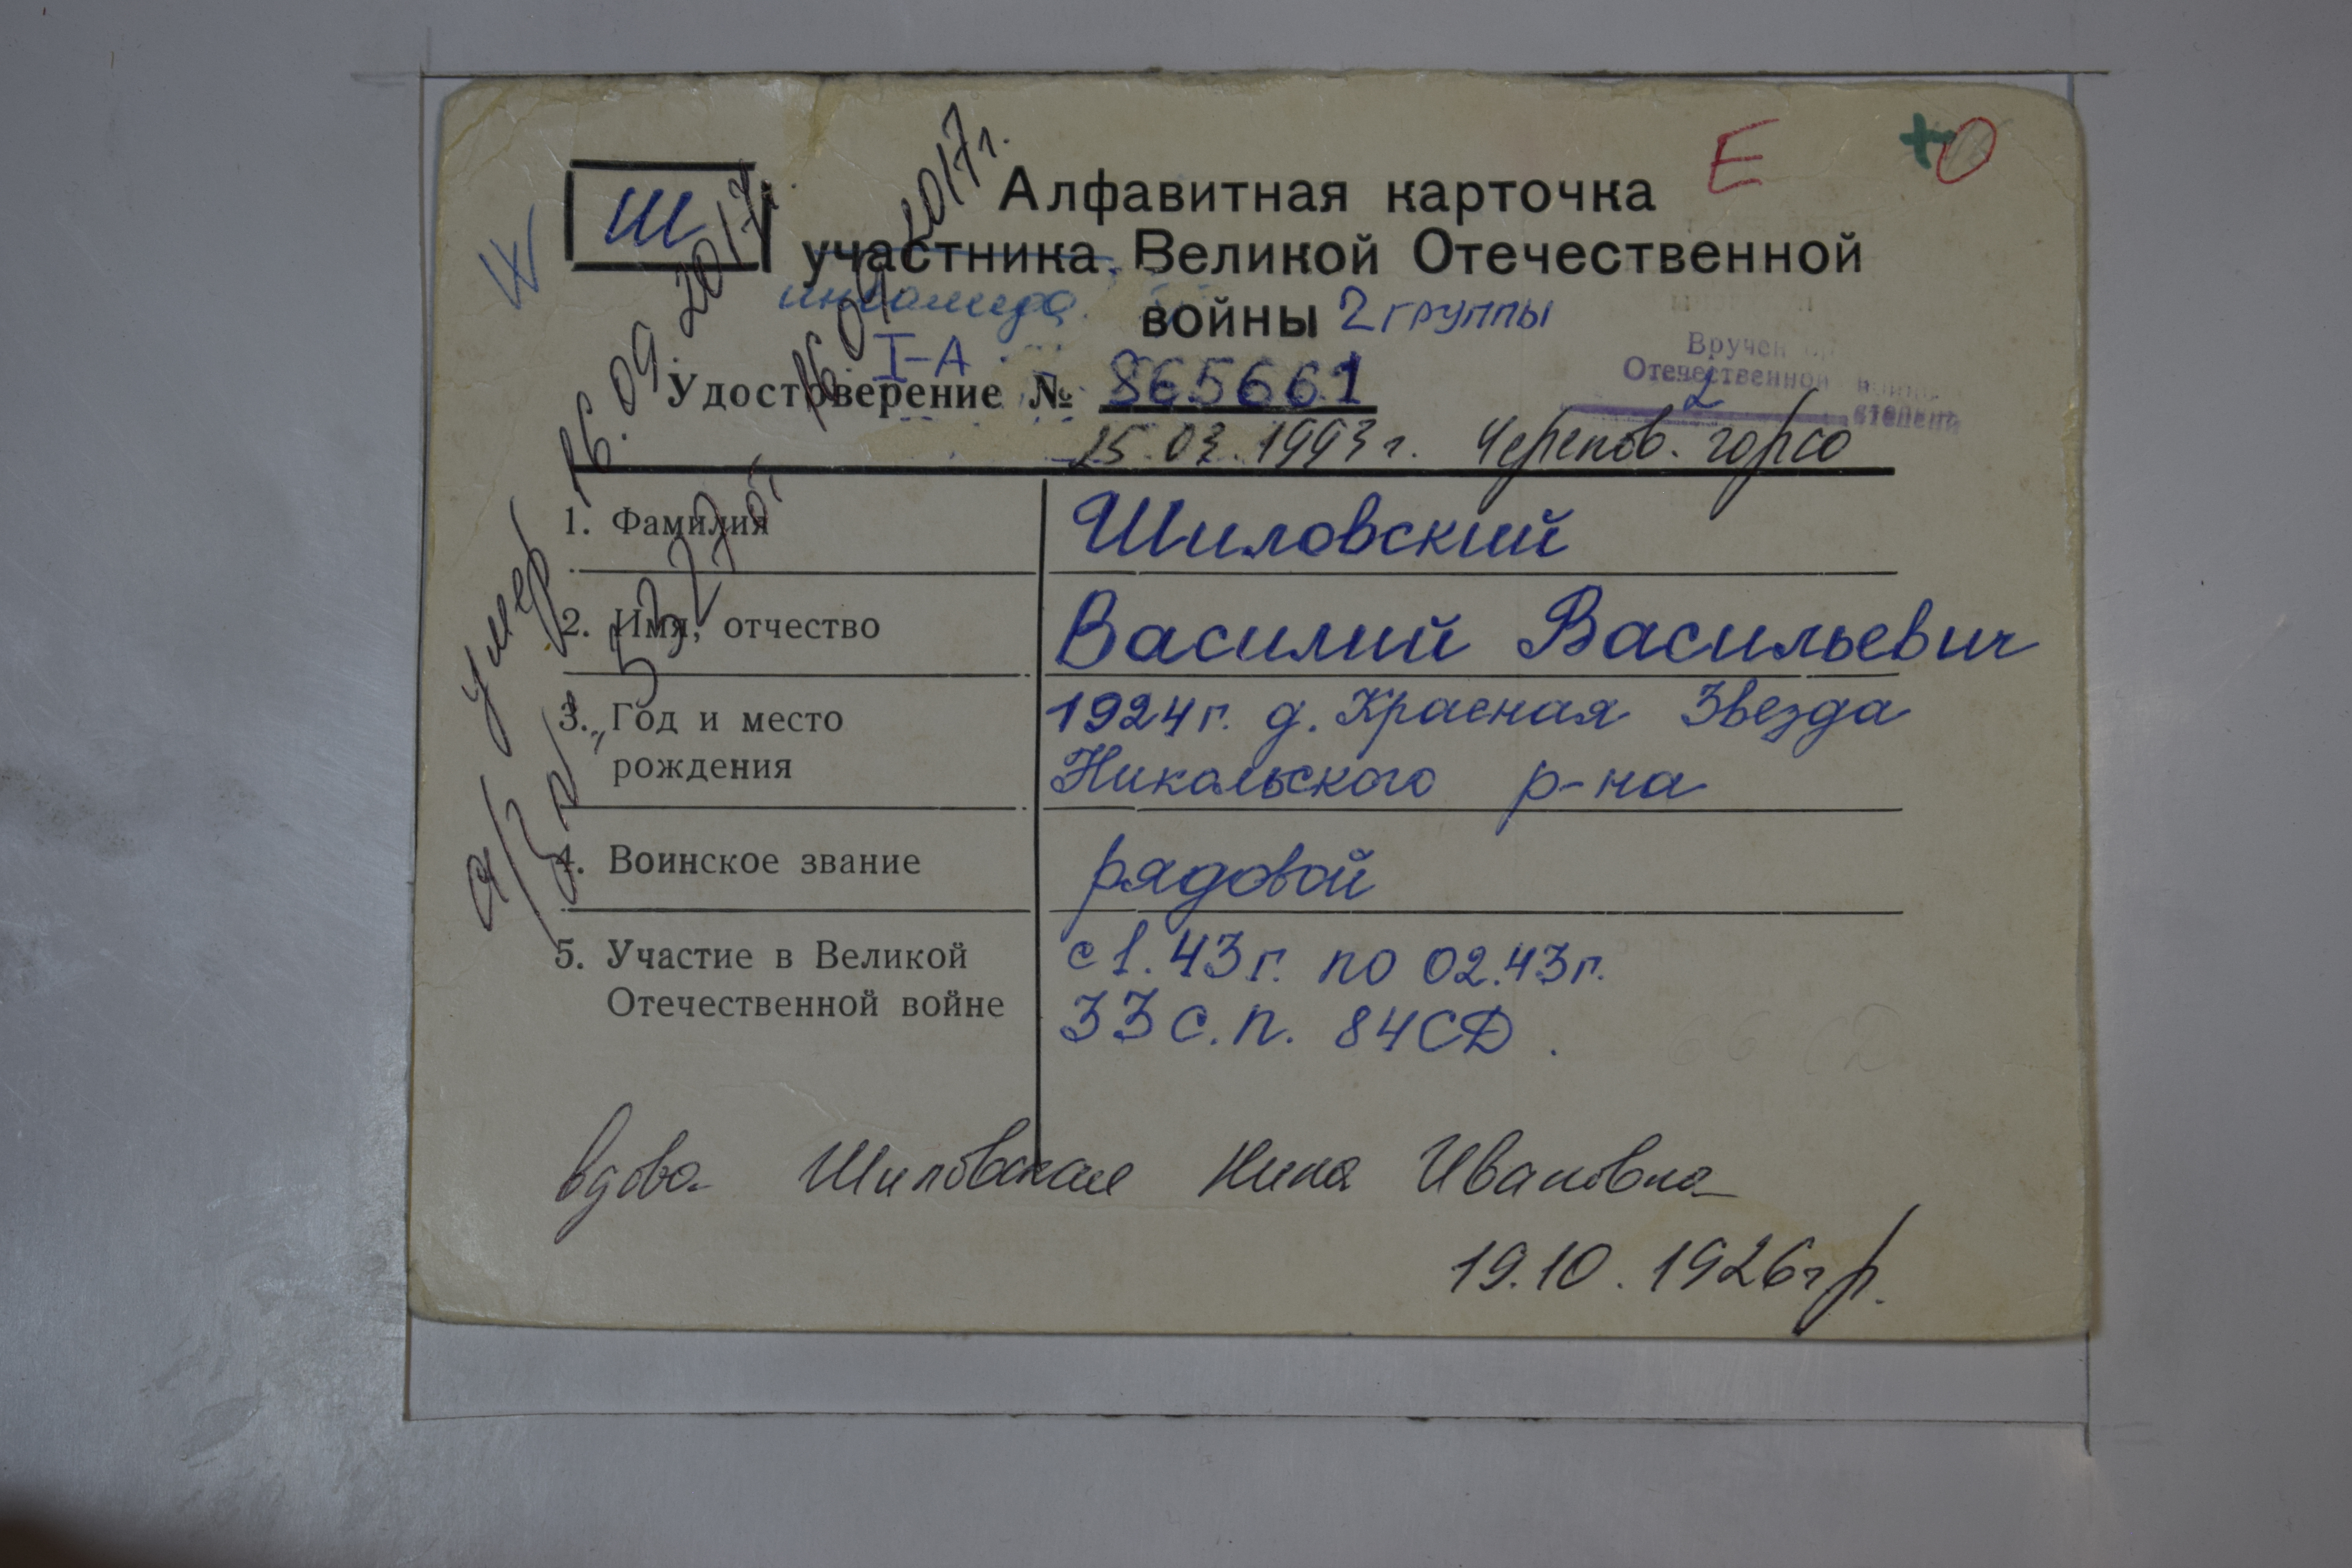 Ш
Алфавитная карточка
Е
+О
участника Великой Отечественной
инвалида
войны 2 группы
I-А
Удостоверение № 865661
Вручен
Отечественной
2 степени
25.03.1993 г. Черепов. горсо
умер 16.09.2017
16.09.2017 г.
1. Фамилия
Шиловский
2. Имя, отчество
Василий Васильевич
3. Год и место
рождения
1924 г. д. Красная Звезда
Никольского р-на
4. Воинское звание
рядовой
5. Участие в Великой
Отечественной войне
с 1.43 г. по 02.43 г.
33 с.п. 84 СД.
вдова Шиловская Нина Ивановна
19.10.1926 г р.